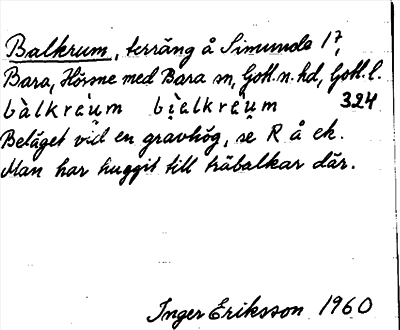 Balkrum, terräng å Simunde 17,
Bara, Hörsne med Bara sn, Gotl. n. hd, Gotl. l.
bàlkrau̯m bi̯alkrau̯m 324
Beläget vid en gravhög, se R å ek.
Man har huggit till träbalkar där.
Inger Eriksson 1960